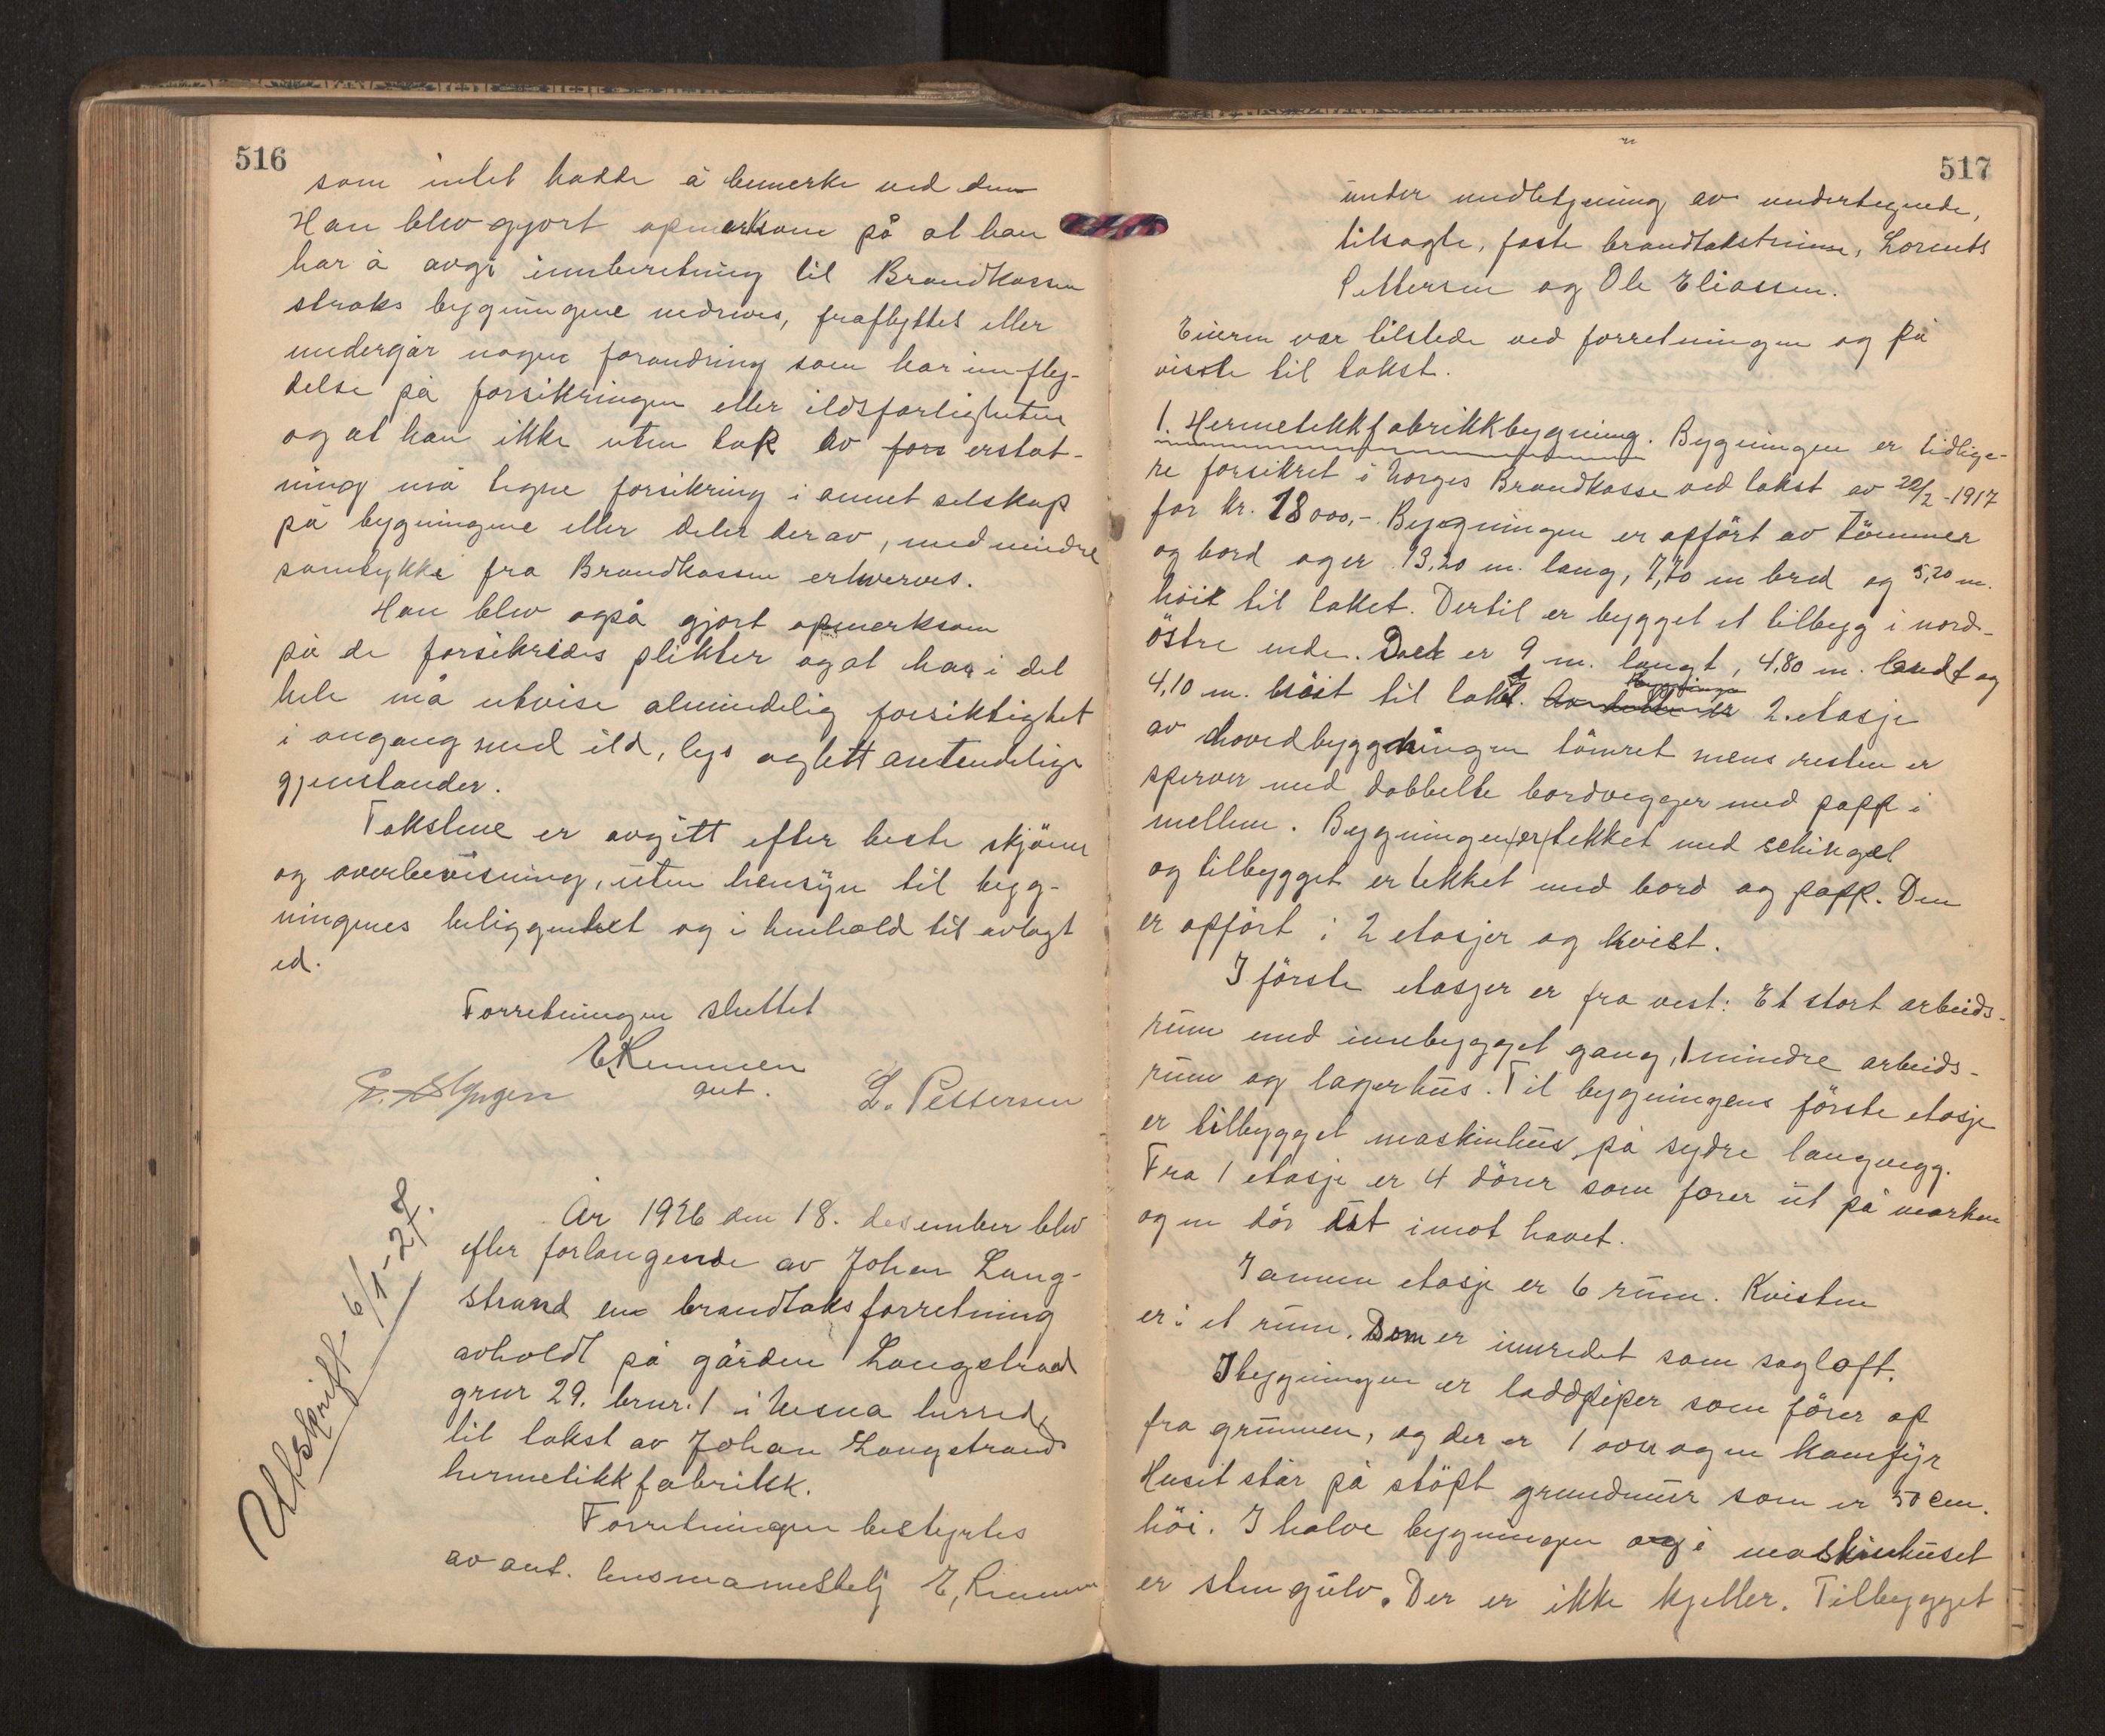 516
som intet hadde å bemerke ved dem
Han blev gjort opmerksom på at han
har å avgi innberetning til Brandkassen
straks bygningene nedrives, fraflyttet eller
undergår nogen forandring som har innfly-
delse på forsikringen eller ildsfarligheten
og at han ikke uten tap av fors erstat-
ning må tegne forsikring i annet selskap
på bygningene eller deler derav, med mindre
samtykke fra Brandkassen erhverves.
Han blev også gjort opmerksom
på de forsikredes plikter og at han i det
hele må utvise almindelig forsiktighet
i omgang med ild, lys og lett antendelige
gjenstander.
Takstene er avgitt efter beste skjönn
og overbevisning, uten hensyn til byg-
ningenes beliggenhet og i henhold til avlagt
ed.
Forretningen sluttet
E. Remmen
aut.
L. Pettersen
Utskrift 6/1-27.
År 1926 den 18. desember blev
efter forlangende av Johan Lang-
strand en brandtaksforretning
avholdt på gården Langstrand
grnr 29. brnr. 1 i Nesna herred,
til takst av Johan Langstrands
hermetikkfabrikk.
Forretningen bestyrtes
av aut. lensmannsbetj E. Remmen
517
under medbetjening av undertegnede,
tilsagte, faste brandtakstmenn, Lorents
Pettersen og Ole Eliassen.
Eieren var tilstede ved forretningen og på
viste til takst.
1. Hermetikkfabrikkbygning. Bygningen er tidlige-
re forsikret i Norges Brandkasse ved takst av 22/2-1917
for kr. 18000,-. Bygningen er opfört av tömmer
og bord og er 13,20 m. lang, 7,70 m bred og 5,20 m.
höit til taket. Dertil er bygget et tilbygg i nord-
östre ende. Det er 9 m. langt, 4,80 m. bredt og
4,10 m. höit til taket. 2. etasje
av hovedbygningen tömret mens resten er
sperrer med dobbelte bordvegger med papp i
mellem. Bygningen er tekket med schingel
og tilbygget er tekket med bord og papp. Den
er opfört i 2 etasjer og kvist.
I förste etasjer er fra vest: Et stort arbeids-
rum med innebygget gang, 1 mindre arbeids-
rum og lagerhus. Til bygningens förste etasje
er tilbygget maskinhus på sydre langvegg.
Fra 1 etasje er 4 dörer som förer ut på marken
og en dör ut imot havet.
I annen etasje er 6 rum. Kvisten
er i et rum. Den er innredet som sagloft.
I bygningen er loddpiper som förer op
fra grunnen, og der er 1 ovn og en komfyr
Huset står på stöpt grundmur som er 50 cm.
höi. I halve bygningen og i maskinhuset
er stengulv. Der er ikke kjeller. Tilbygget